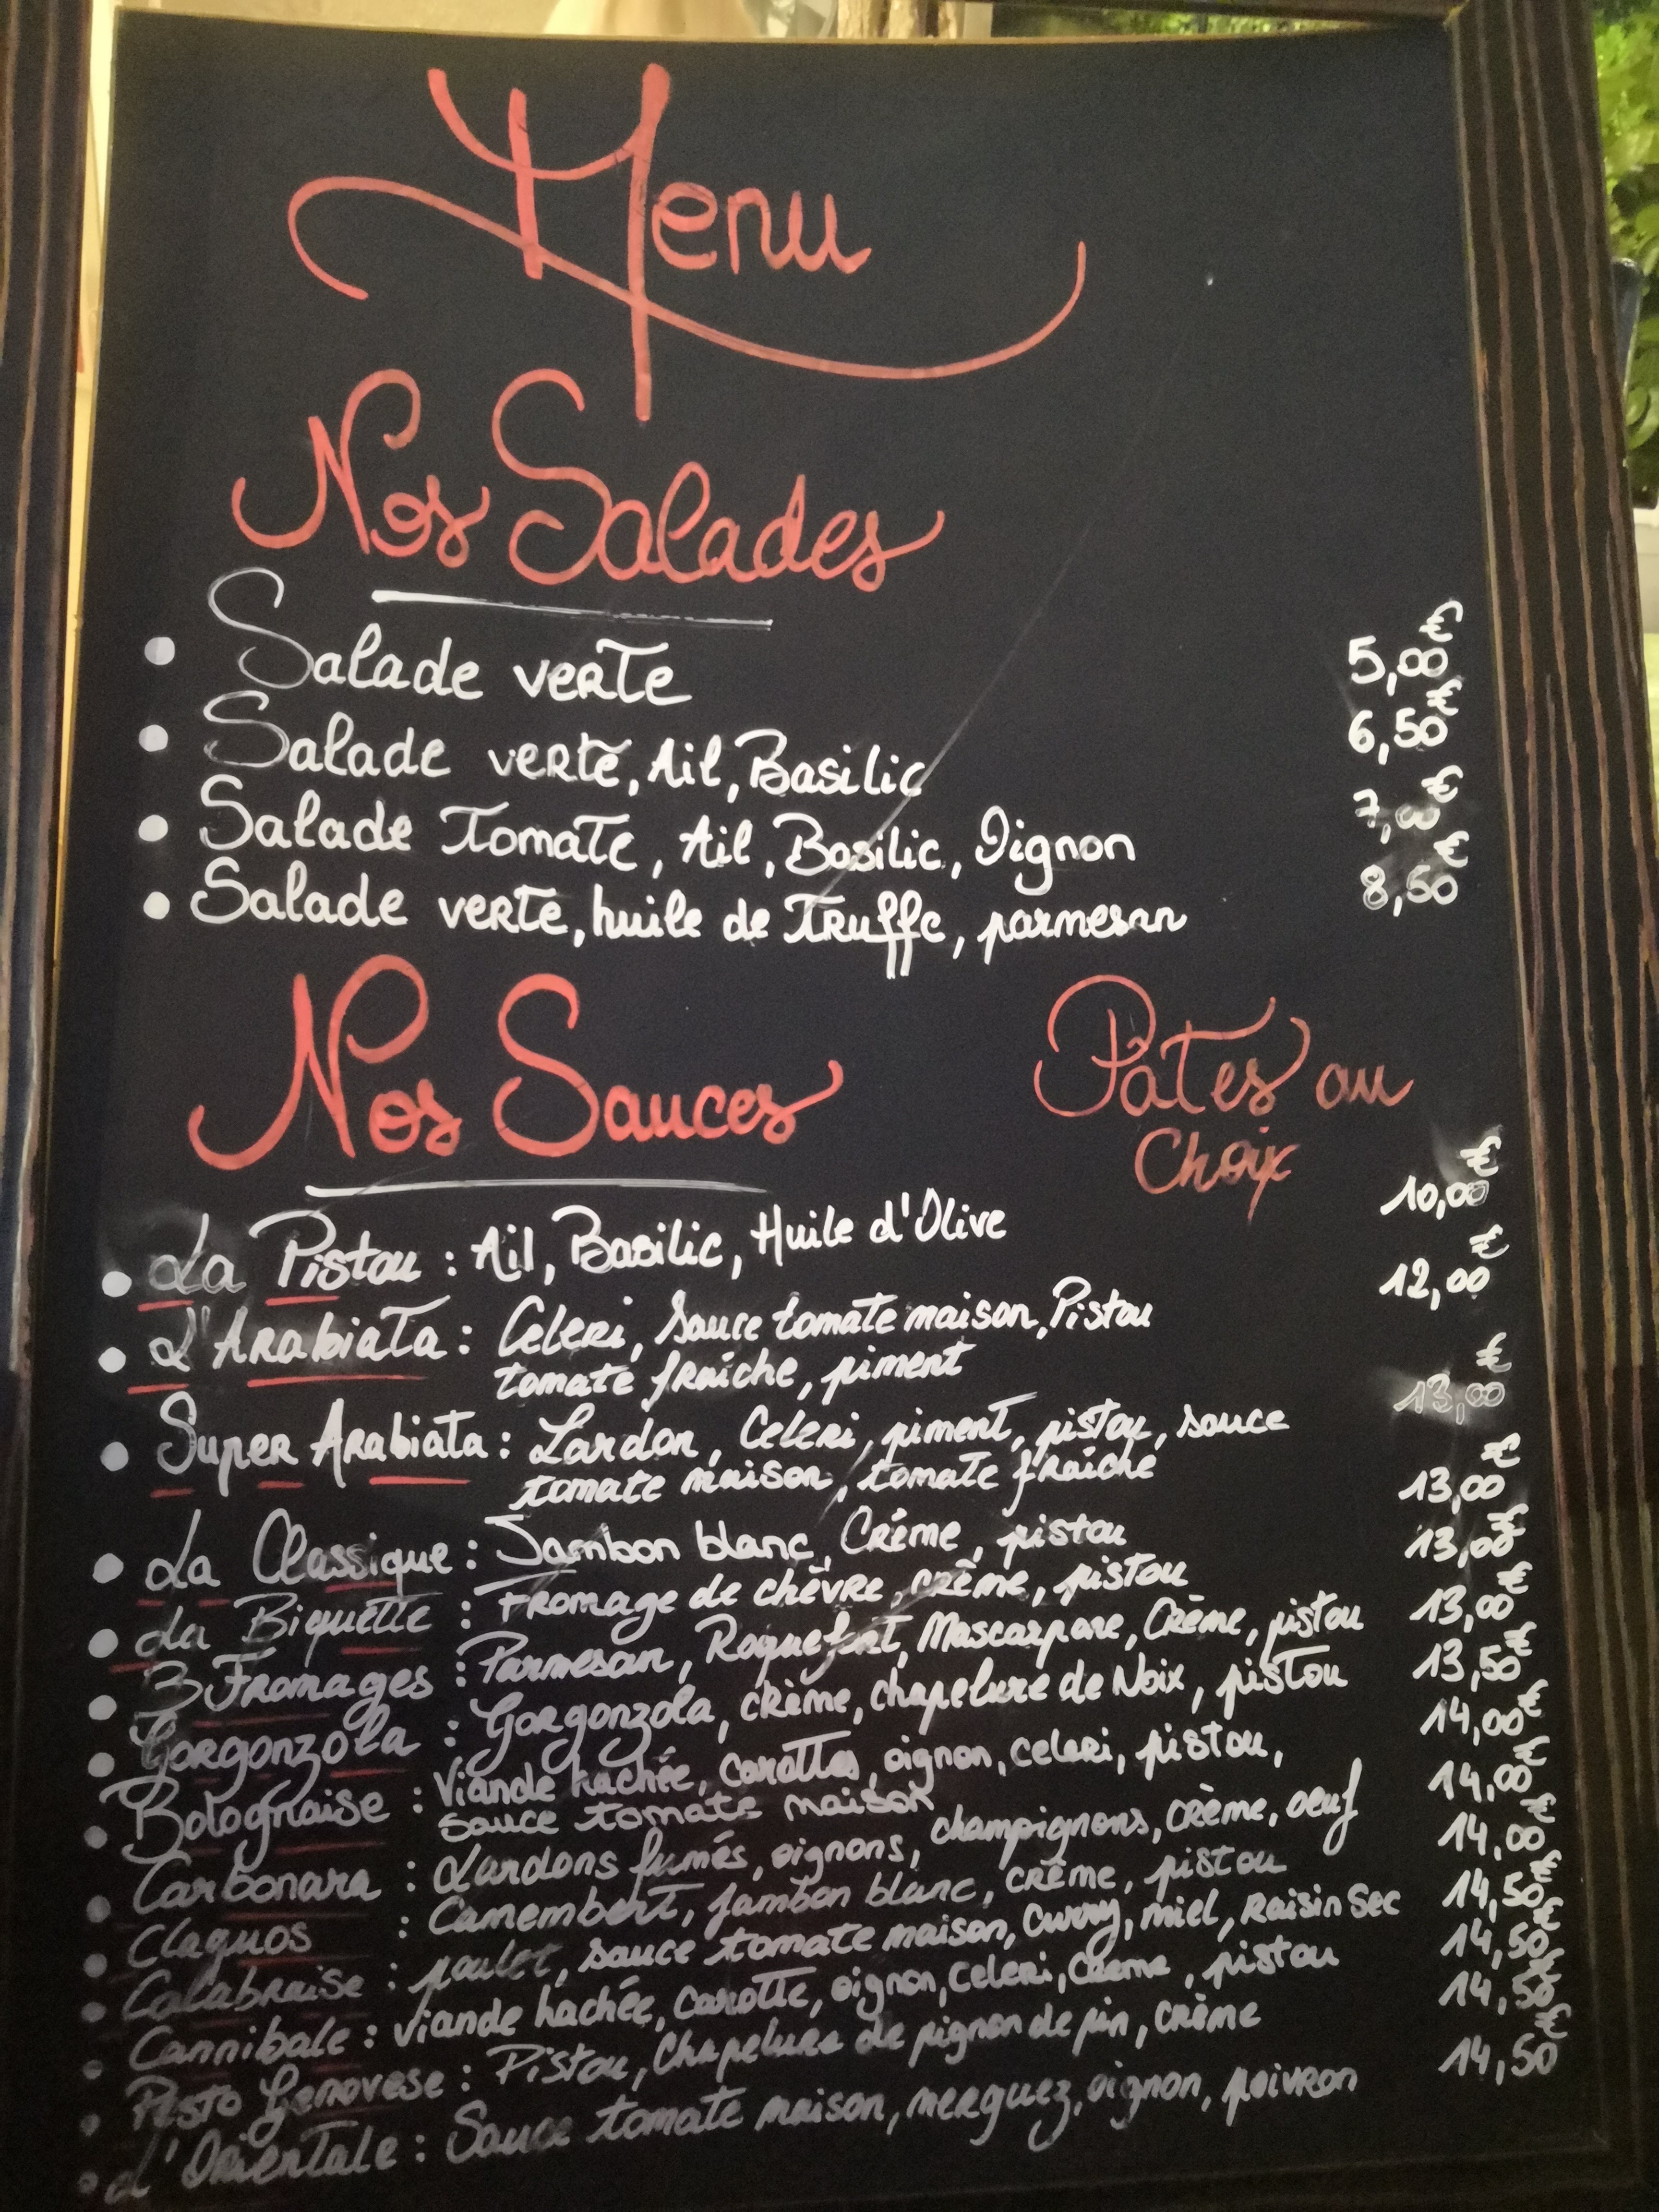 Menu
Nos Salades
• Salade verte 5,00€
• Salade verte, Ail, Basilic 6,50€
• Salade Tomate, Ail, Basilic, Oignon 7,00€
• Salade verte, huile de Truffe, parmesan 8,50€
Nos Sauces
Pâtes au
Choix
• La Pistou : Ail, Basilic, Huile d'Olive 10,00€
• L'Arabiata : Celeri, Sauce tomate maison, Pistou 12,00€
tomate fraîche, piment
• Super Arabiata : Lardon, Celeri, piment, pistou, sauce 13,00€
tomate maison, tomate fraîche
• La Classique : Jambon blanc, Crème, pistou 13,00€
• La Biquette : Fromage de chèvre, crème, pistou 13,00€
• 3 Fromages : Parmesan, Roquefort, Mascarpone, Crème, pistou 13,00€
• Gorgonzola : Gorgonzola, crème, chapelure de Noix, pistou 13,50€
• Bolognaise : Viande hachée, carottes, oignon, celeri, pistou, 14,00€
sauce tomate maison
• Carbonara : Lardons fumés, oignons, champignons, crème, oeuf 14,00€
• Claquos : Camembert, jambon blanc, crème, pistou 14,00€
• Calabraise : poulet, sauce tomate maison, Curry, miel, Raisin Sec 14,50€
• Cannibale : Viande hachée, carotte, oignon, Celeri, Crème, pistou 14,50€
• Pesto Genovese : Pistou, Chapelure de pignon de pin, crème 14,50€
• L'Orientale : Sauce tomate maison, merguez, oignon, poivron 14,50€